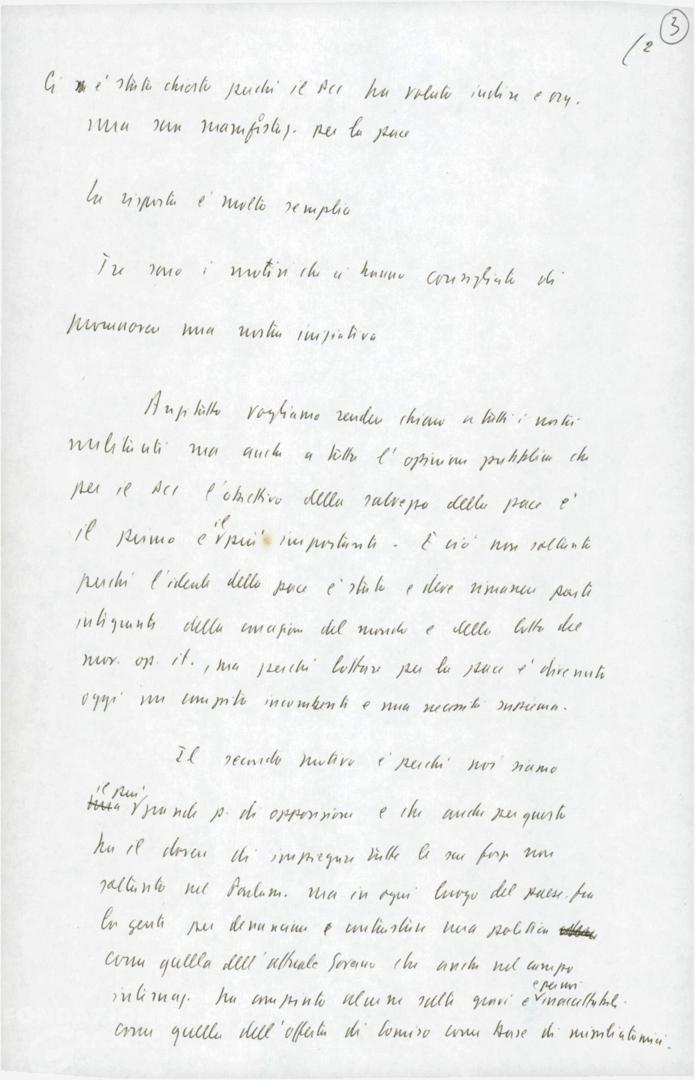 3
(2
Ci è stato chiesto perché il PCI ha voluto indire e org.
una sua manifestaz. per la pace
La risposta è molto semplice
Tre sono i motivi che ci hanno consigliato di
promuovere una nostra iniziativa
Anzitutto vogliamo rendere chiaro a tutti i nostri
militanti ma anche a tutta l'opinione pubblica che
per il PCI l'obiettivo della salvezza della pace è
il primo e il più importante. E ciò non soltanto
perché l'ideale della pace è stato e deve rimanere parte
integrante della concezione del mondo e della lotta del
mov. op. it., ma perché lottare per la pace è divenuto
oggi un compito incombente e una necessità suprema.
Il secondo motivo è perché noi siamo
il più grande p. di opposizione e che anche per questo
ha il dovere di impiegare tutte le sue forze non
soltanto nel Parlam. ma in ogni luogo del paese, fra
la gente per denunciare e contrastare una politica
come quella dell'attuale Governo che anche nel campo
internaz. ha compiuto alcune scelte gravi e per noi inaccettabili
come quella dell'offerta di Comiso come base di missili atomici.